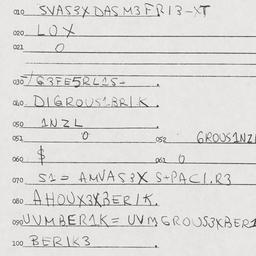 010 SVAS3X DAS M3 FR13-XT
020 LOX
021 0
030 
040 DIGROUS1BRIK.
050 1NZL
051 0 052 GROUS1NZ
060 $ 061 0
070 S1 = AMVAS3X S+PAC1.R3
080 AHOUX3XBERIK.
090 UVMBER1K = UVMGROUS3XBER1
100 BERIK3